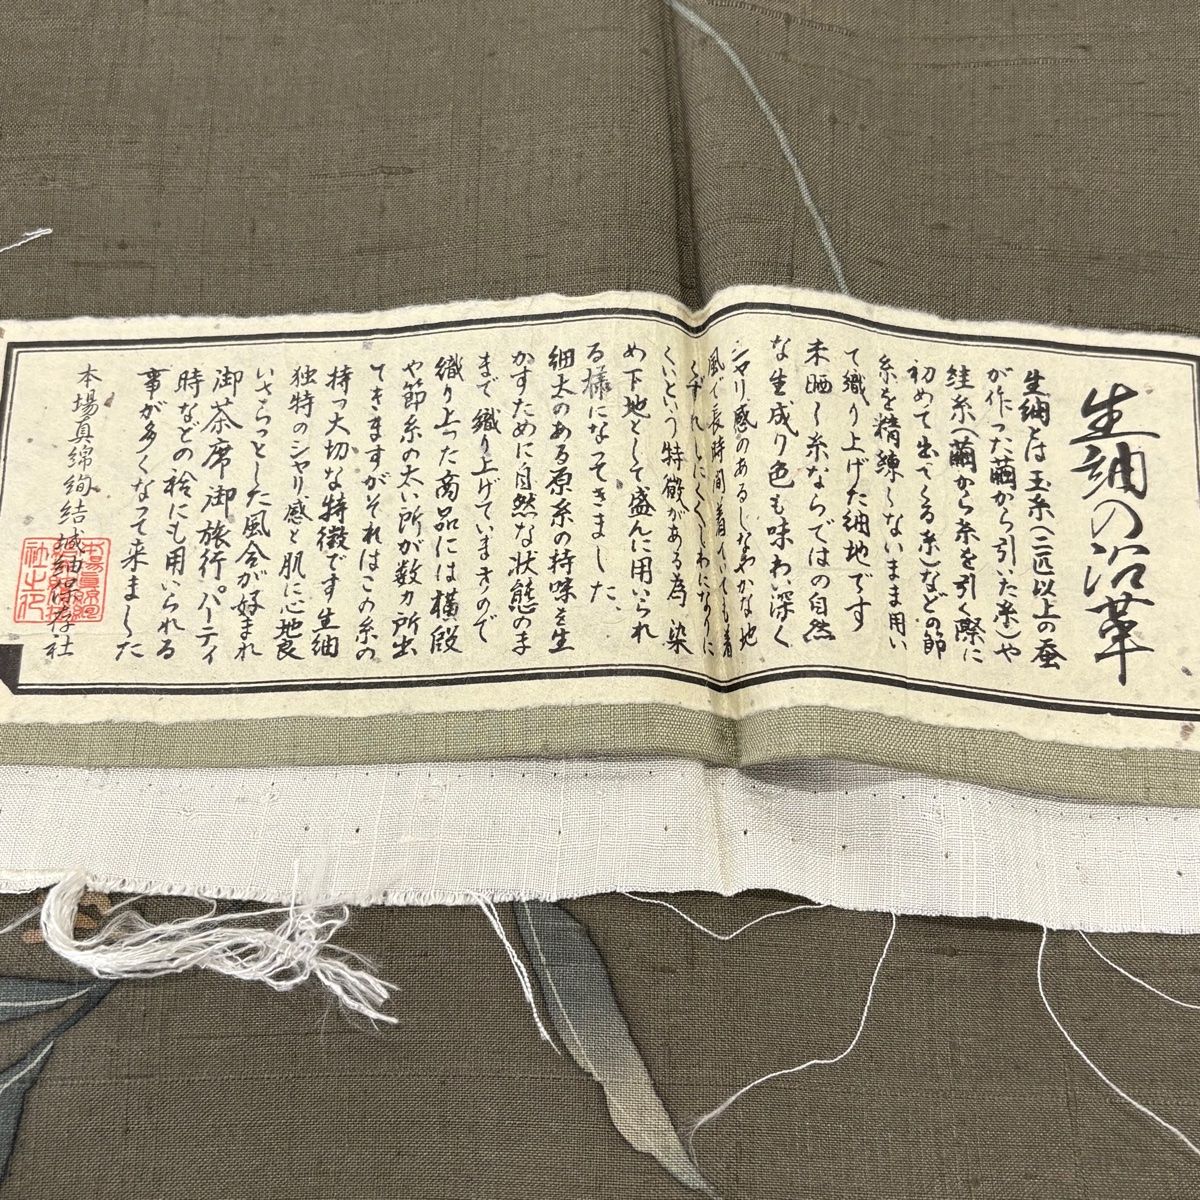 生紬の沿革
生紬とは玉糸(二匹以上の蚕
が作った繭から引いた糸)や
絓糸(繭から糸を引く際に
初めて出てくる糸)などの節
糸を精練しないまま用い
て織り上げた紬地です
未晒し糸ならではの自然
な生成り色も味わい深く
シャリ感のあるしなやかな地
風で長時間着いても着
くずれしにくくしわになりに
くいという特徴がある為 染
め下地として盛んに用いられ
る様になってきました、
細太のある原糸の持味を生
かすために自然な状態のま
まで織り上げていますので
織り上った商品には横段
や節糸の太い所が数ヵ所出
てきますがそれはこの糸の
持つ大切な特徴です 生紬
独特のシャリ感と肌に心地良
いさらっとした風合が好まれ
御茶席御旅行パーティ
時などの袷にも用いられる
事が多くなって来ました
本場真綿絢結城紬保存社